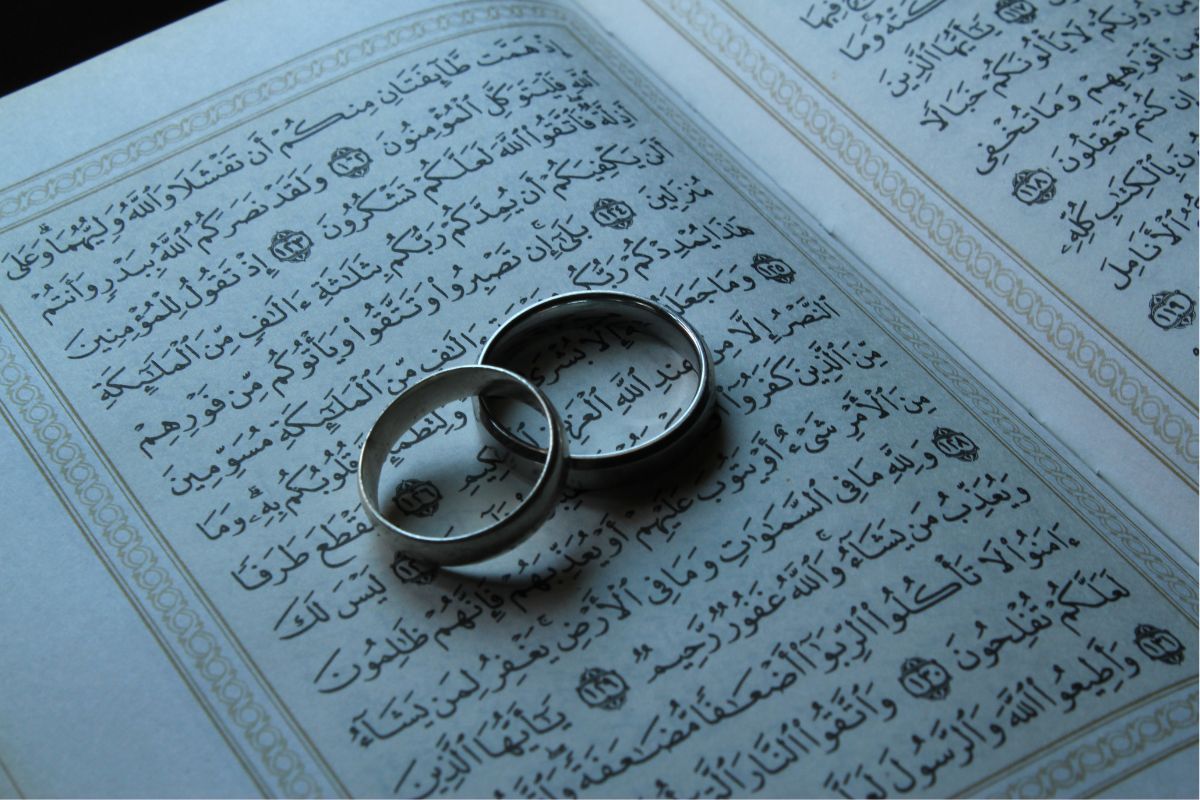 فِيهَا
وَمَا
يَٰٓأَيُّهَا ٱلَّذِينَ
دُونِكُمْ لَا يَأْلُونَكُمْ خَبَالًا
مِنْ أَفْوَٰهِهِمْ وَمَا تُخْفِى
كُنتُمْ تَعْقِلُونَ ١١٨
بِٱلْكِتَٰبِ كُلِّهِۦ
ٱلْأَنَامِلَ
١١٩
إِذْ هَمَّت طَّآئِفَتَانِ مِنكُمْ أَن تَفْشَلَا وَٱللَّهُ وَلِيُّهُمَا ۗ وَعَلَى
ٱللَّهِ فَلْيَتَوَكَّلِ ٱلْمُؤْمِنُونَ ١٢٢ وَلَقَدْ نَصَرَكُمُ ٱللَّهُ بِبَدْرٍ وَأَنتُمْ
أَذِلَّةٌ ۖ فَٱتَّقُوا۟ ٱللَّهَ لَعَلَّكُمْ تَشْكُرُونَ ١٢٣ إِذْ تَقُولُ لِلْمُؤْمِنِينَ
أَلَن يَكْفِيَكُمْ أَن يُمِدَّكُمْ رَبُّكُم بِثَلَٰثَةِ ءَالَٰفٍ مِّنَ ٱلْمَلَٰٓئِكَةِ
مُنزَلِينَ ١٢٤ بَلَىٰٓ ۚ إِن تَصْبِرُوا۟ وَتَتَّقُوا۟ وَيَأْتُوكُم مِّن فَوْرِهِمْ
هَٰذَا يُمْدِدْكُمْ رَبُّكُم ءَالَٰفٍ مِّنَ ٱلْمَلَٰٓئِكَةِ مُسَوِّمِينَ
١٢٥ وَمَا جَعَلَهُ إِلَّا بُشْرَىٰ وَلِتَطْمَئِنَّ قُلُوبُكُم بِهِۦ ۗ وَمَا
ٱلنَّصْرُ إِلَّا مِنْ عِندِ ٱللَّهِ ٱلْعَزِيزِ ٱلْحَكِيمِ ١٢٦ لِيَقْطَعَ طَرَفًا
مِّنَ ٱلَّذِينَ كَفَرُوٓا۟ لَيْسَ لَكَ
مِنَ ٱلْأَمْرِ شَىْءٌ أَوْ يَتُوبَ عَلَيْهِمْ أَوْ يُعَذِّبَهُمْ فَإِنَّهُمْ ظَٰلِمُونَ
١٢٨ وَلِلَّهِ مَا فِى ٱلسَّمَٰوَٰتِ وَمَا فِى ٱلْأَرْضِ ۚ يَغْفِرُ لِمَن يَشَآءُ
وَيُعَذِّبُ مَن يَشَآءُ ۚ وَٱللَّهُ غَفُورٌ رَّحِيمٌ ١٢٩ يَٰٓأَيُّهَا ٱلَّذِينَ
ءَامَنُوا۟ لَا تَأْكُلُوا۟ ٱلرِّبَوٰٓا۟ أَضْعَٰفًا مُّضَٰعَفَةً ۖ وَٱتَّقُوا۟
لَعَلَّكُمْ تُفْلِحُونَ ١٣٠ وَٱتَّقُوا۟ ٱلنَّارَ
١٣١ وَأَطِيعُوا۟ ٱللَّهَ وَٱلرَّسُولَ